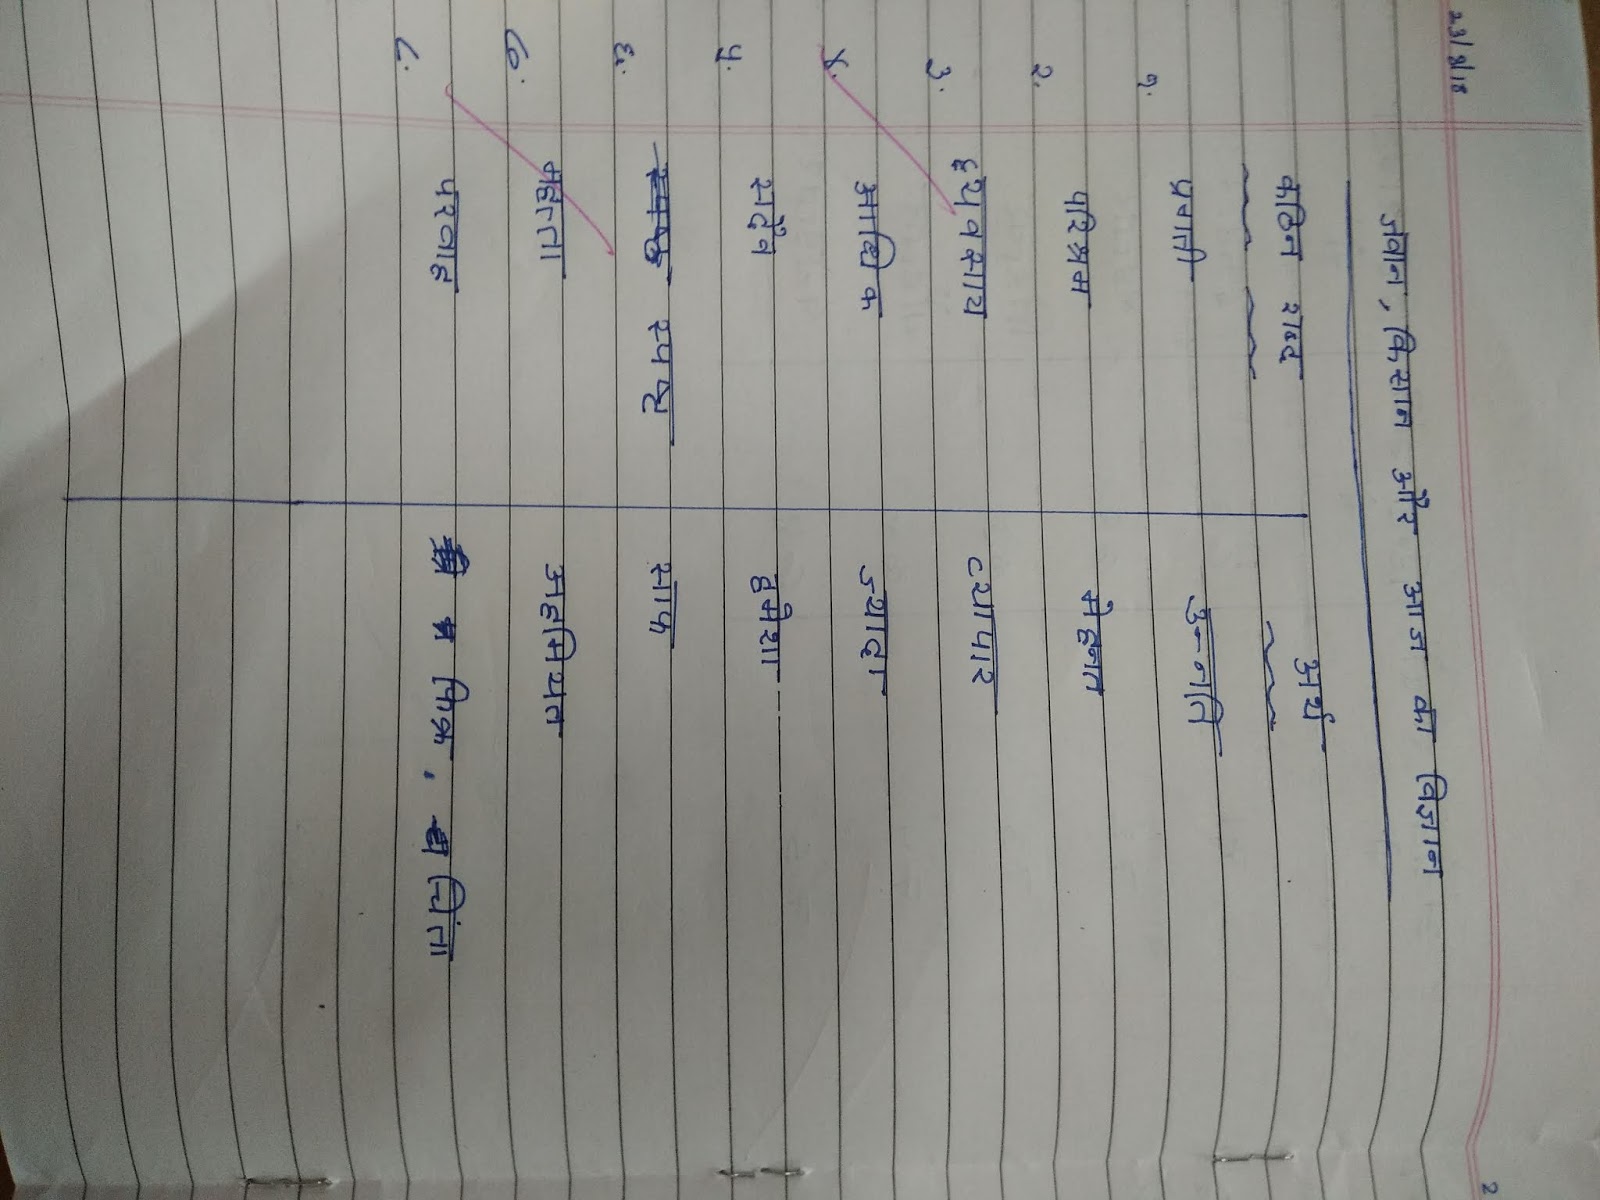 23/8/18
2
जवान, किसान और आज का विज्ञान
कठिन शब्द अर्थ
१. प्रगती उन्नति
२. परिश्रम मेहनत
३. व्यवसाय व्यापार
४. अधिक ज्यादा
५. सदैव हमेशा
६. स्पष्ट साफ
७. महत्ता अहमियत
८. परवाह फिक्र, चिंता